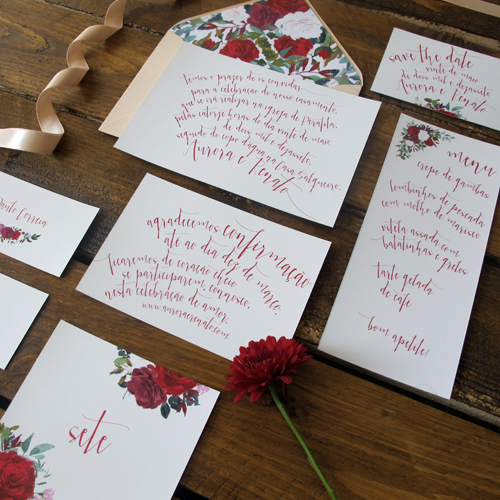 temos o prazer de os convidar
para a celebração do nosso casamento,
que se irá realizar na igreja de Parafita,
pelas catorze horas do dia vinte de maio
de dois mil e dezassete,
seguido de copo d'água na Casa Salgueiro.
Aurora e Renato
save the date
vinte de maio
de dois mil e dezassete
Aurora e Renato
menu
crepe de gambas
lombinhos de pescada
com molho de marisco
vitela assada com
batatinhas e grelos
tarte gelada
de café
bom apetite!
agradecemos confirmação
até ao dia dez de março,
ficaremos de coração cheio
se participarem, connosco,
nesta celebração de amor.
www.auroraerenato.com
Correia
sete